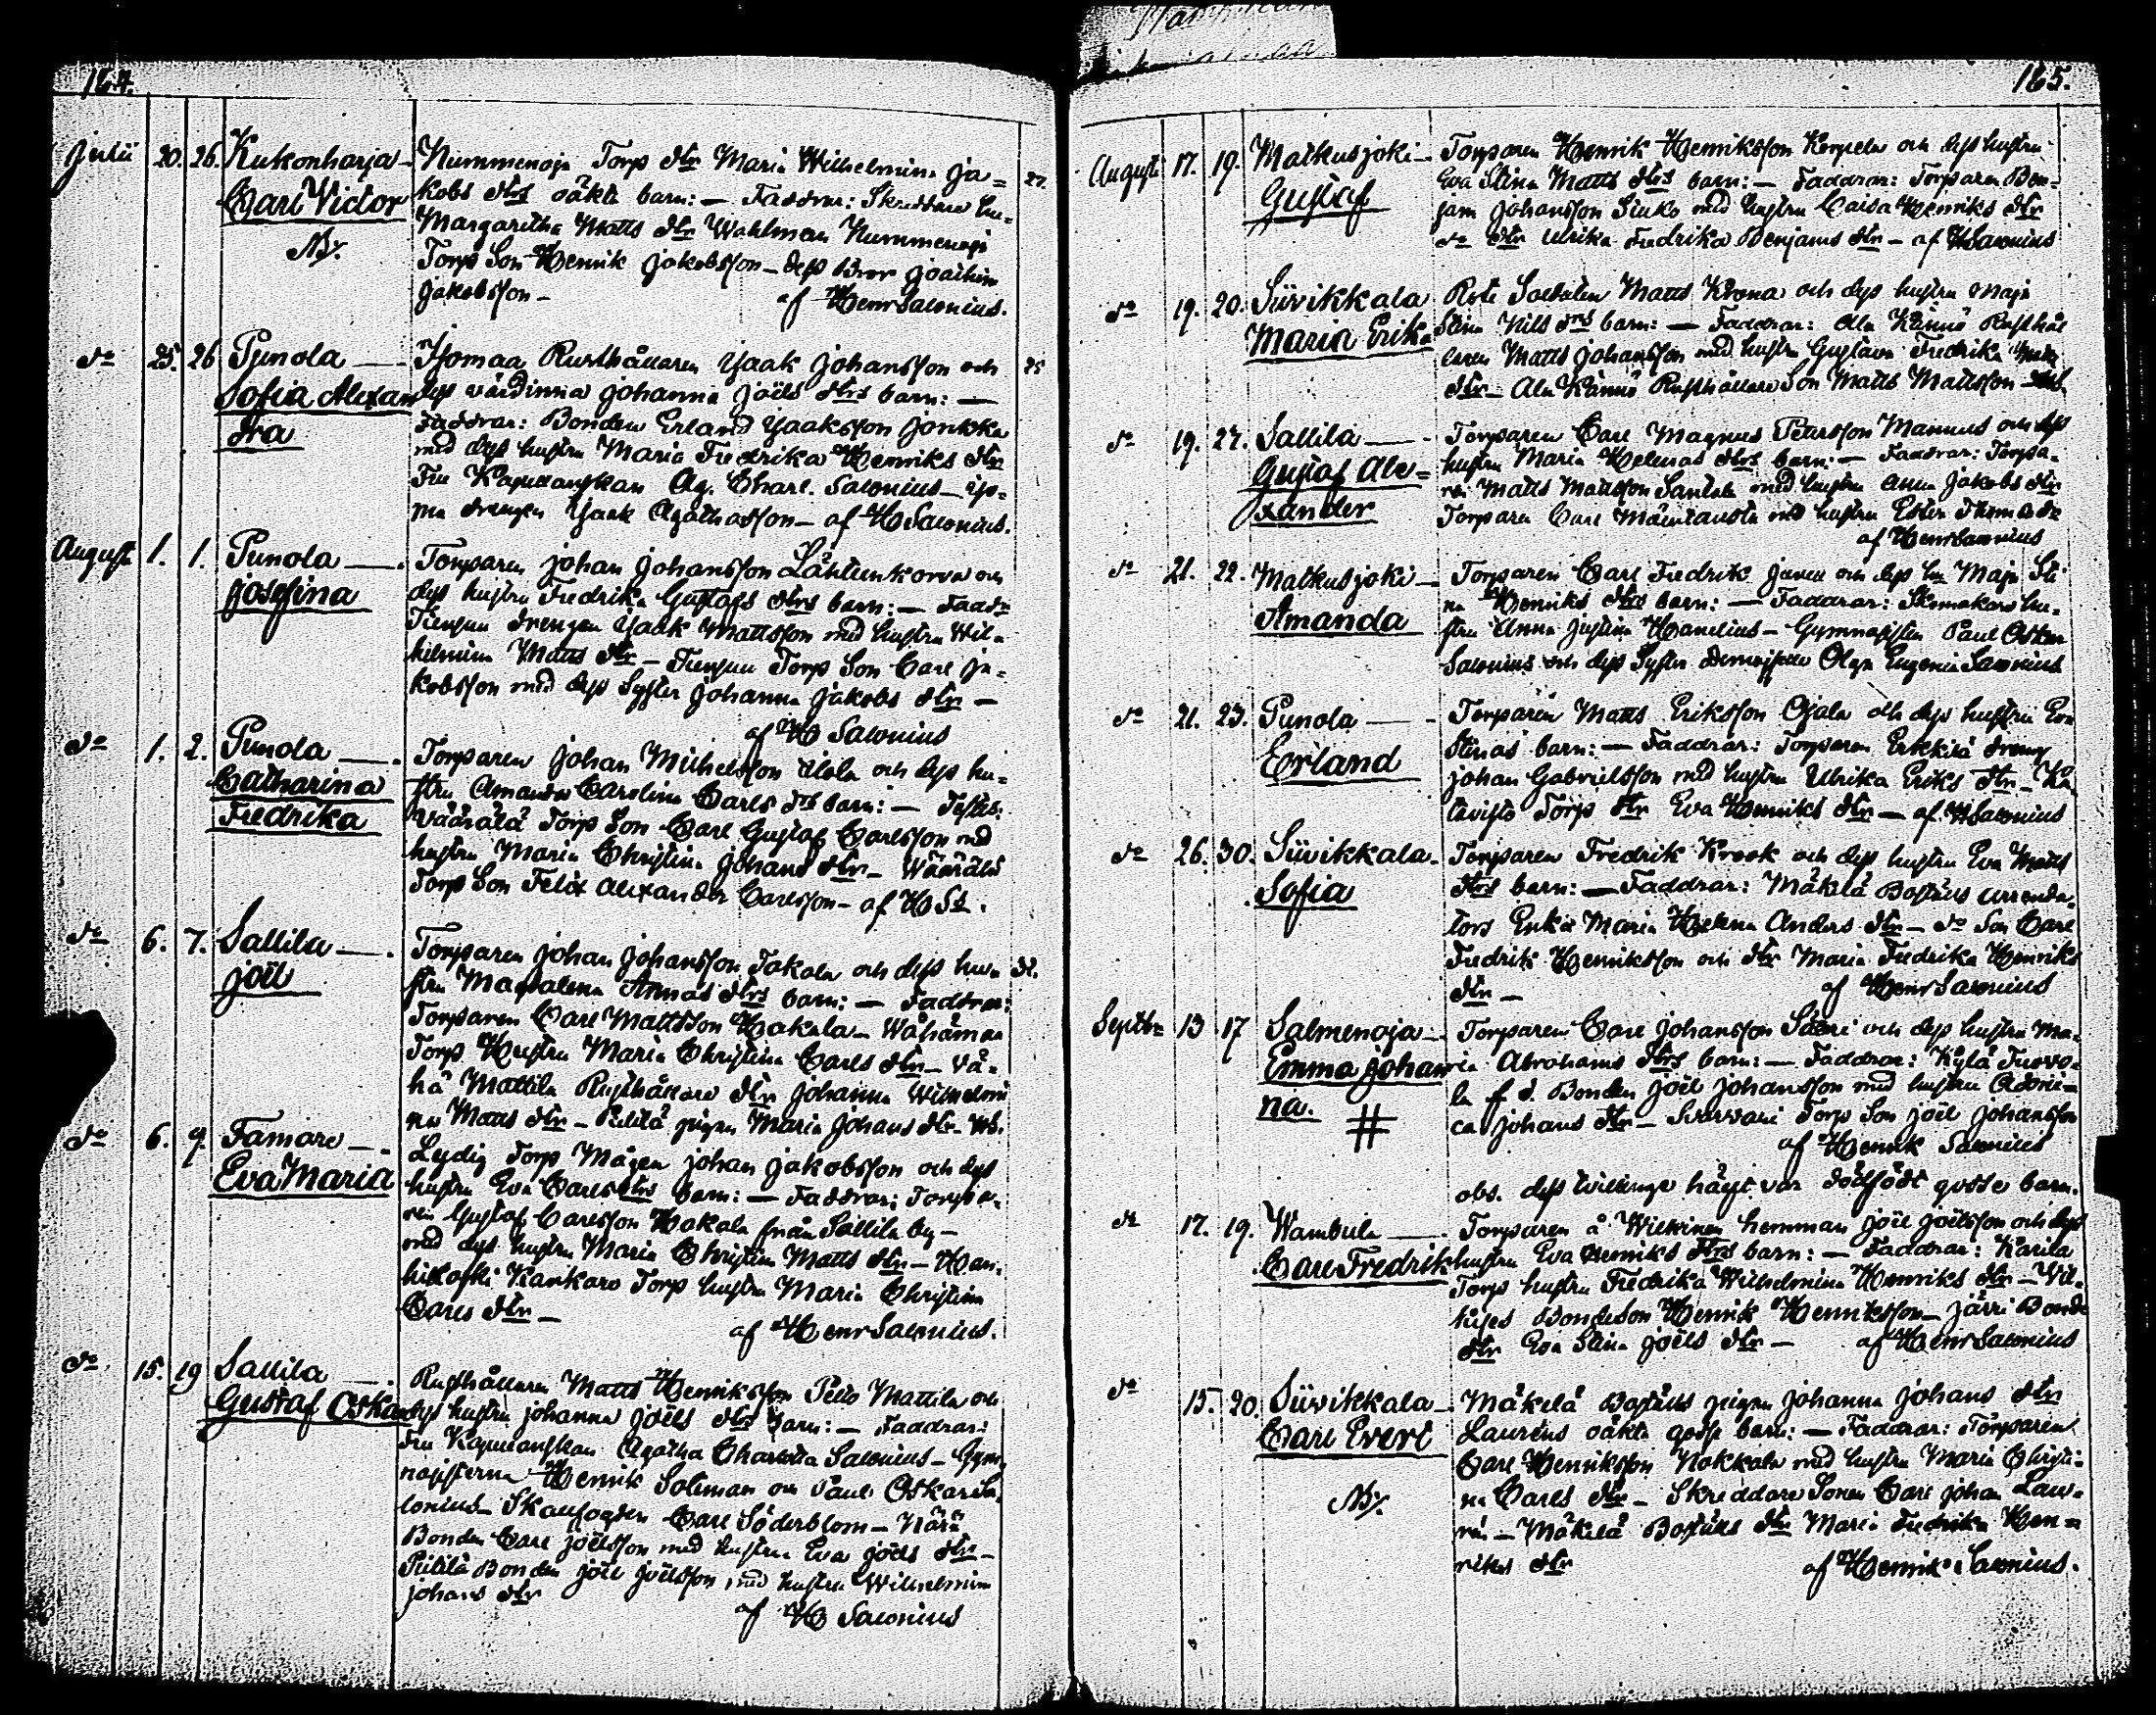 164.
Julii 20. 26. Kukonharja - Nummenoja Torp dtr Maria Wilhelmina Ja=
Carl Victor kobs dtrs oäkta barn: — Faddrar: Skreddare hu= 27.
Margaretha Matts dtr Wahlman Nummenoja
NB. Torp Son Henrik Jakobsson - dess Bror Joachim
Jakobsson - af Henr Salonius.
do 25. 26 Punola — Isomaa Rusthållaren Isaak Johansson och 25
Sofia Alexan dess värdinna Johanna Joëls dtrs barn: —
dra Faddrar: Bonden Erland Isaaksson Jonkka
med dess hustru Maria Fredrika Henriks dtr
Fru Kapellanskan Ag. Charl. Salonius -
drengen Isaak Agathasson - af H Salonius.
August 1. 1. Punola — Torparen Johan Johansson Lähteenkorva och
Josefina dess hustru Fredrika Gustafs dtrs barn: — Faddr
drengen Isaak Mattsson med hustru Wil=
helmina Matts dtr - Torp Son Carl Ja=
kobsson med dess Syster Johanna Jakobs dtr —
af H Salonius
do 1. 2. Punola — Torparen Johan Michelsson och dess hu=
Catharina stru Amanda Carolina Carls dtrs barn: — Testes:
Fredrika Väärälä Torp Son Carl Gustaf Carlsson med
hustru Maria Christina Johans dtr - Wäärälä
Torp Son Felix Alexander Carlsson - af H Ss.
do 6. 7. Sallila — Torparen Johan Johansson Takala och dess hu=
Joël stru Magdalena Annas dtrs barn: — Faddrar:
Torparen Carl Mattsson Hakala -
Torp Hustru Maria Christina Carls dtr - Vä=
hä Mattila Rusthållare dtr Johanna Wilhelmi
na Matts dtr - pigan Maria Johans dtr -
do 6. 9. Tamare — Lydig Torp Mågen Johan Jakobsson och dess
Eva Maria hustru Eva Carls dtrs barn: — Faddrar: Torpa=
ren Gustaf Carlsson Hakala från Sallila by —
med dess hustru Maria Christina Matts dtr - Han=
hikoski Karkaro Torp hustru Maria Christina
Carls dtr — af Henr Salonius.
do 15. 19 Sallila — Rusthållaren Matts Henriksson Mattila och
Gustaf Oskar dess hustru Johanna Joëls dtrs barn: — Faddrar:
Fru Kapellanskan Agatha Charlotta Salonius - Gym
nasisterna Henrik Soliman och Paul Oskar Sa
lonius - Skaufogden Carl Söderblom -
Bonden Carl Joëlsson med hustru Eva Joëls dtr -
Bonden Joël Joëlsson med hustru Wilhelmina
Johans dtr af H Salonius
165.
August 17. 19. Matkusjoki - Torparen Henrik Henriksson Korpela och dess hustru
Gustaf Eva Stina Matts dtrs barn: — Faddrar: Torparen Ben=
jam Johansson med hustru Caisa Henriks dtr
do dtr Ulrika Fredrika Benjams dtr - af H Salonius
do 19. 20. Siivikkala Rote Soldaten Matts Krona och dess hustru Maja
Maria Erika Stina Nils dtrs barn: — Faddrar: Ala Rusthål
laren Matts Johansson med hustru Gustava Fredrika
dtr - Ala Rusthållare Son Matts Mattsson
do 19. 27. Sallila — Torparen Carl Magnus Petersson Mannus och dess
Gustaf Ale= hustru Maria Helenas dtrs barn: — Faddrar: Torpa=
xander ren Matts Mattsson Santala med hustru Anna Jakobs dtr
Torparen Carl med hustru Ester
af Henr Salonius
do 21. 22. Matkusjoki - Torparen Carl Fredrik och dess hu Maja Sti
Amanda na Henriks dtrs barn: — Faddrar: Skomakare hu=
stru Anna Justina - Gymnasisten Paul Oskar
Salonius och dess Syster Demoiselle Olga Eugenia Salonius
do 21. 23. Punola — Torparen Matts Eriksson Ojala och dess hustru Eva
Erland Stinas barn: — Faddrar: Torparen Erkkilä dreng
Johan Gabrielsson med hustru Ulrika Eriks dtr -
Torp dtr Eva Henriks dtr — af H Salonius
do 26. 30. Siivikkala - Torparen Fredrik Krook och dess hustru Eva Matts
Sofia dtrs barn: — Faddrar: Mäkilä Boställs arrenda=
tors Enka Maria Helena Anders dtr - do Son Carl
Fredrik Henriksson och dtr Maria Fredrika Henriks
dtr — af Henr Salonius
Septbr 13 17 Salmenoja - Torparen Carl Johansson och dess hustru Ma=
Emma Johan ria Abrahams dtrs barn: — Faddrar: Kylä
na. # f. d. Bonden Joël Johansson med hustru
Johans dtr - Torp Son Joël Johansson
af Henrik Salonius
obs. dess tvillinge var dödfödt gosse barn.
do 17. 19. Wambula — Torparen å hemman Joël Joëlsson och dess
Carl Fredrik hustru Eva Henriks dtrs barn: — Faddrar: Karila
Torp hustru Fredrika Wilhelmina Henriks dtr -
Bondeson Henrik Henriksson - Järvi Bonde
dtr Eva Stina Joëls dtr — af Henr Salonius
do 15. 20. Siivikkala - Mäkilä Boställs pigan Johanna Johans dtr
Carl Evert Lauréns oäkta gosse barn: — Faddrar: Torparen
Carl Henriksson Nokkala med hustru Maria Christi=
NB. na Carls dtr - Skreddare Sonen Carl Johan Lau=
rén - Mäkilä Boställs dtr Maria Fredrika Hen=
riks dtr af Henrik Salonius.